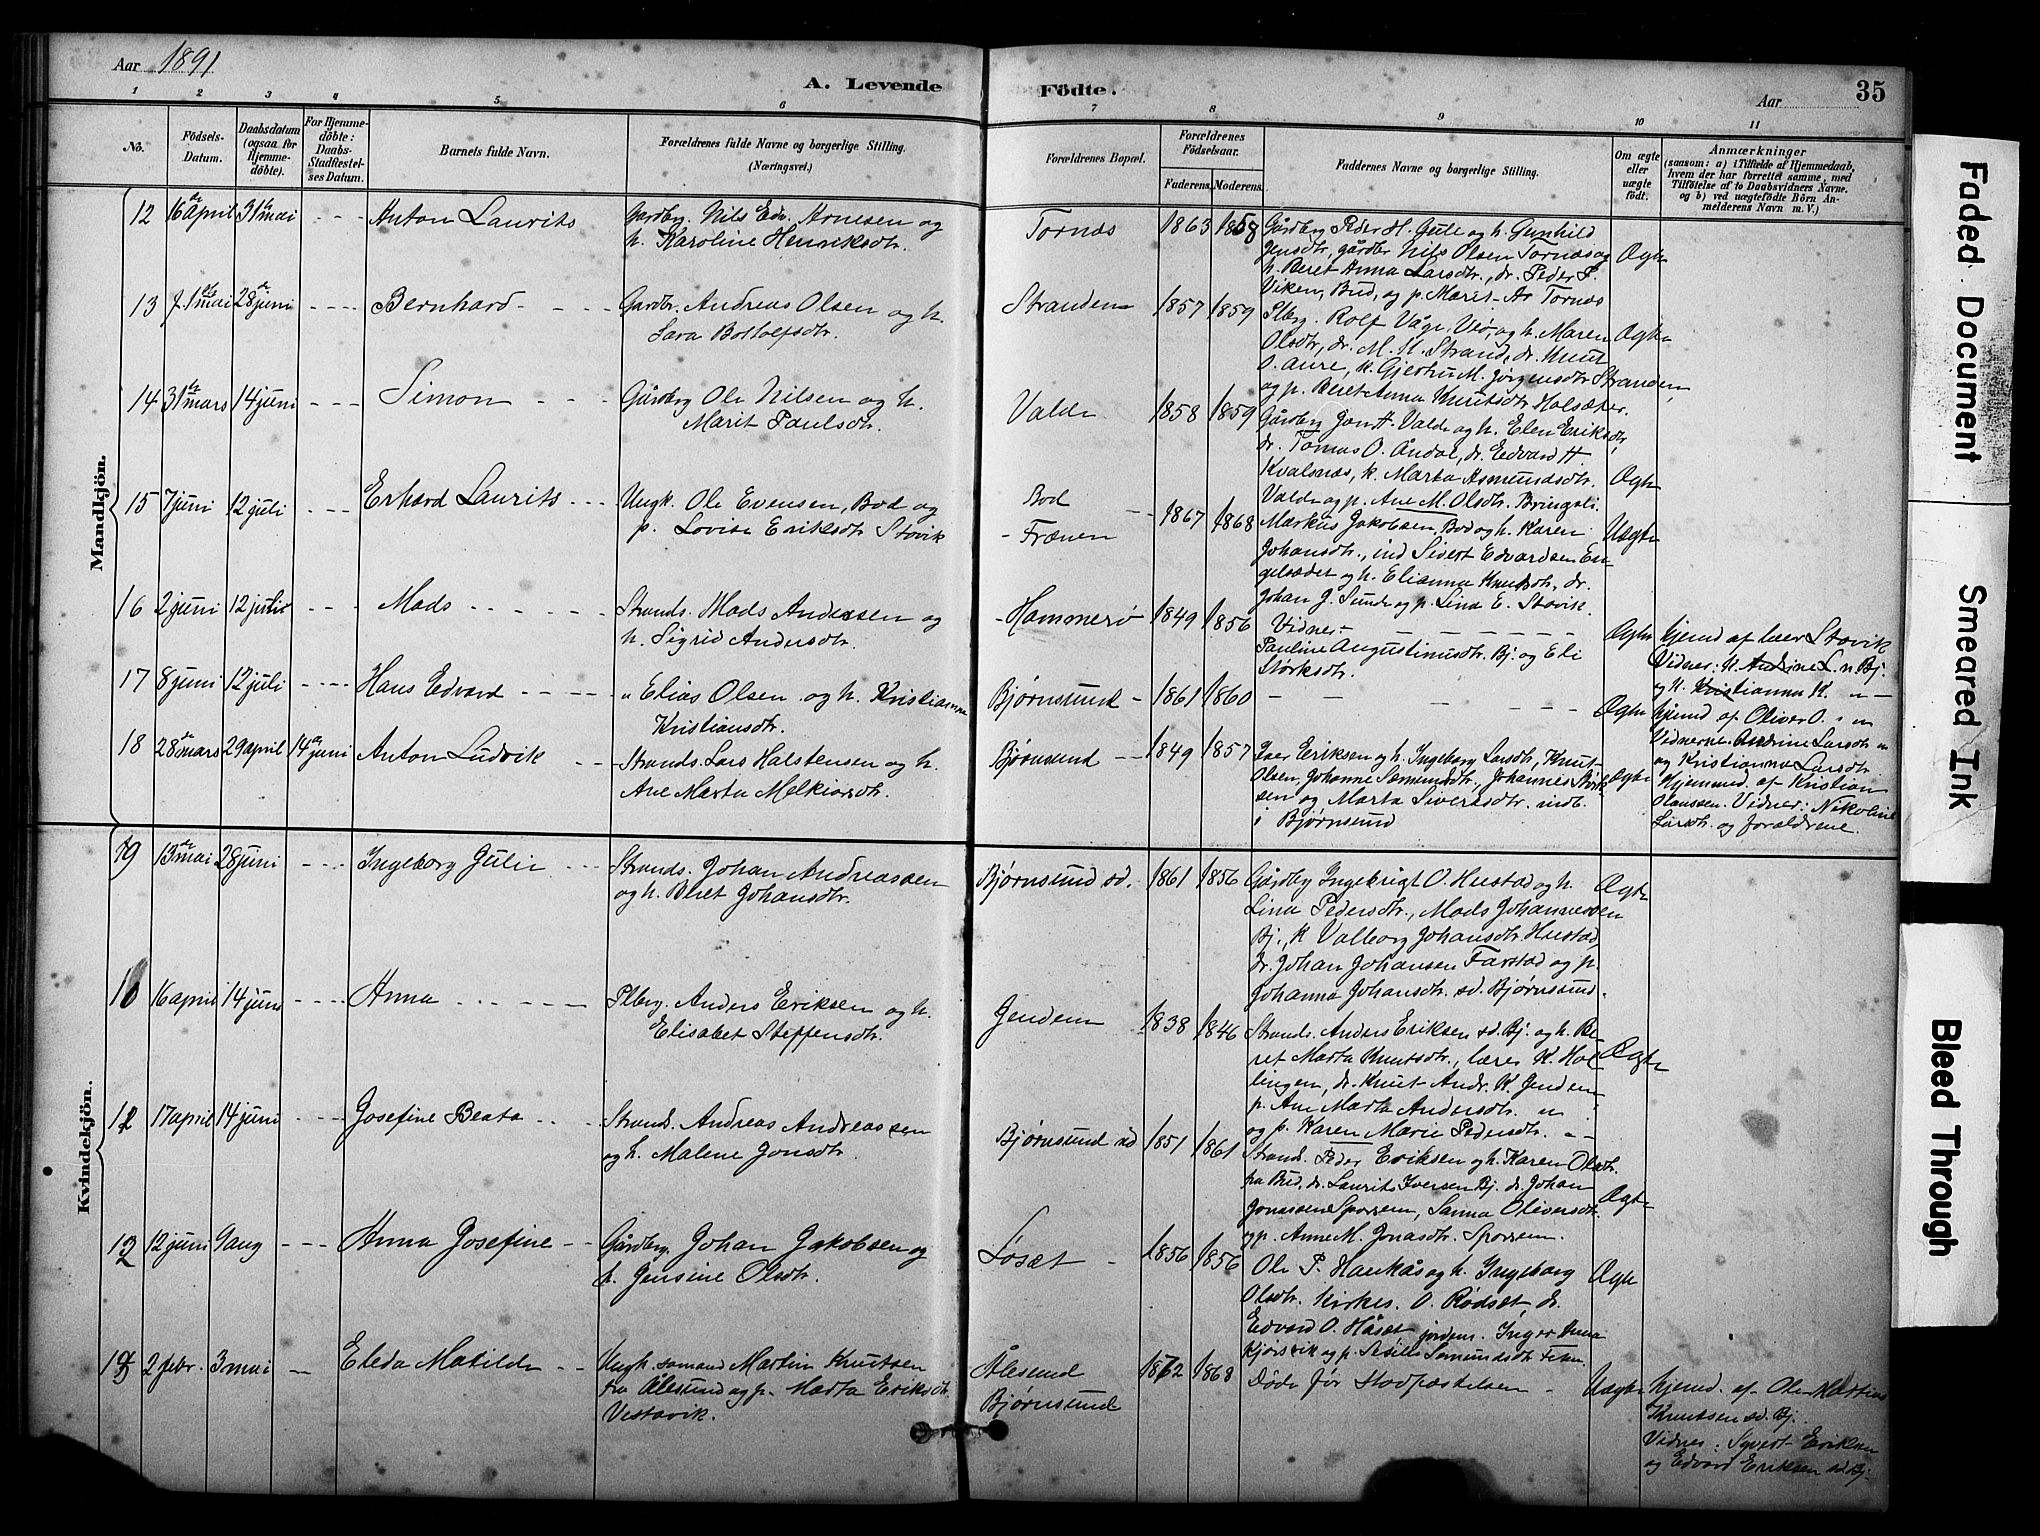 Aar 1891
A. Levende Födte.
Aar 35
1 2 3 4 5 6 7 8 9 10 11
No.
Födsels-Datum.
Daabsdatum (ogsaa for Hjemmedöbte).
For Hjemmedöbte: Daabs-Stadfæstelses Datum.
Barnets fulde Navn.
Forældrenes fulde Navne og borgerlige Stilling.
(Næringsvei.)
Forældrenes Bopæl.
Forældrenes Födselsaar.
Faderens. Moderens.
Faddernes Navne og borgerlige Stilling.
Om ægte eller uægte födt.
Anmærkninger
(saasom: a) i Tilfælde af Hjemmedaab, hvem der har forrettet samme, med Tilföielse af to Daabsvidners Navne. og b) ved uægtefödte Börn Anmelderens Navn m. V.)
Mandkjön.
12 16 april 31 mai - - - Anton Laurits
Gardbr. Nils Edv. Arnesen og
h. Karoline Henriksdtr.
Tornæs 1863 1858
Gårdbr. Peder H. Gule og h. Gunhild
Jensdtr, gårdbr Nils Olsen Tornæs og
h. Beret Anna Larsdtr., dr. Peder P.
Viken, Bud, og p. Marit As Tornæs
Ægte
13 1 mai 28 juni - - - Bernhard
Gardbr. Andreas Olsen og h.
Sara Bottolfsdtr.
Stranden 1857 1859
Plbrg. Rolf Våge, Veø, og h. Maren
Olsdtr, dr. M. K. Strand, dr. Knut
O. Aure, k. Gjertru M. Jørgensdtr Stranden,
og p. Beret Anna Knutsdtr Holsæter.
Ægte
14 31 mars 14 juni - - - Simon
Gårdbrg Ole Nilsen og h.
Marit Paulsdtr.
Valde 1858 1859
Gårdbrg Jon H. Valde og h. Elen Eriksdtr,
dr. Tomas O. Åndal, dr. Edvard H
Kvalsnæs, k. Marta Asmundsdtr.
Valde og p. Ane M. Olsdtr. Bringsli.
Ægte
15 7 juni 12 juli - - - Erhard Laurits
Ungk. Ole Evensen, Bod og
p. Lovise Eriksdtr Stavik
Bod
- Frænen
1867 1868
Markus Jakobsen, Bod og h. Karen
Johansdtr., ind Sivert Edvardsen En-
gelsædet og h. Elianna Knutsdtr. dr.
Johan J. Sunde og p. Lina E. Stavik.
Uægte
16 2 juni 12 juli - - - Mads
Strands. Mads Andersen og
h. Sigrid Andersdtr.
Hammerø 1849 1856
Vidner -
Pauline Augustinusdtr. Bj. og Eli
Størksdtr.
Ægte
hjemd af lærer Stavik
Vidner: h. Andrine L. n Bj.
og h. Kristianna K. " -
17 8 juni 12 juli - - - Hans Edvard
" Elias Olsen og h. Kristianna
Kristiansdtr.
Bjørnsund 1861 1860
Ægte
hjemd af Oliver O. " "
Vidnerne. Andrine Larsdtr "
og Kristianna Larsdtr
18 28 mars 29 april 14 juni Anton Ludvik
Strands. Lars Halstensen og h.
Ane Marta Melkiorsdtr.
Bjørnsund 1849 1857
Iver Eriksen og h. Ingeborg Larsdtr, Knut
Olsen, Johanne Sæmundsdtr, Johannes Størk-
sen og Marta Siversdtr. indb.
i Bjørnsund
Ægte
Hjemmed. af Kristian
Olaussen. Vidner: Nikoline
Larsdtr. og forældrene.
Kvindekjön.
13 mai 28 juni - - - Ingeborg Julie
Strands. Johan Andreassen
og h. Beret Johansdtr.
Bjørnsund sd. 1861 1856
Gårdbrg Ingebrigt O. Hustad og h.
Lina Pedersdtr., Mads Johannessen
Bj., k Valborg Johansdtr Hustad,
dr. Johan Johansen Farstad og p.
Johanna Johansdtr. sd. Bjørnsund.
Ægte
16 april 14 juni - - - Anna
Plbrg. Anders Eriksen og h.
Elisabet Steffensdtr.
Gendem 1838 1846
Strands. Anders Eriksen sd. Bj. og h. Be-
ret Marta Knutsdtr., lærer K. Hol-
lingen, dr. Knut Andr. K. Jendem
p. Ane Marta Andersdtr. "
og p. Karen Marie Pedersdtr. " -
Ægte
12 17 april 14 juni - - - Josefine Beata
Strands. Andreas Andreassen
og h. Malene Jonsdtr.
Bjørnsund sd 1851 1861
Strands. Peder Eriksen og h. Karen Olsdtr.
fra Bud, dr. Laurits Iversen Bj. dr. Johan
Jonassen Sporsem, Sanna Oliversdtr.
og p. Anne M. Jonasdtr. Sporsem.
Ægte
13 12 juni 9 aug - - - Anna Josefine
Gårdbrg. Johan Jakobsen og
h. Jensine Olsdtr.
Løsæt 1856 1856
Ole P. Haukås og h. Ingeborg
Olsdtr. Kirkes. O. Rødsæt, dr.
Edvard O. Håsæt, jordem. Inger Anna
Kjørsvik og p. Sesilie Semundsdtr
Ægte
2 febr. 3 mai - Eleda Matilde
Ungk. sømand Martin Knutsen
fra Ålesund og p. Marta Eriksdtr.
Vestavik.
Ålesund
Bjørnsund
1862 1868
Døde før Stadfæstelsen -
Uægte
hjemd. af Ole Martin
Knutsen sd. Bj.
Vidner: Syvert Eriksen
og Edvard Eriksen sd Bj.
Faded Document
Smeared Ink
Bleed Through